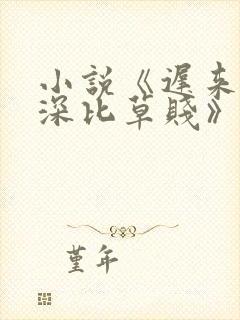 小說《遲来
深比草賤》
堇年